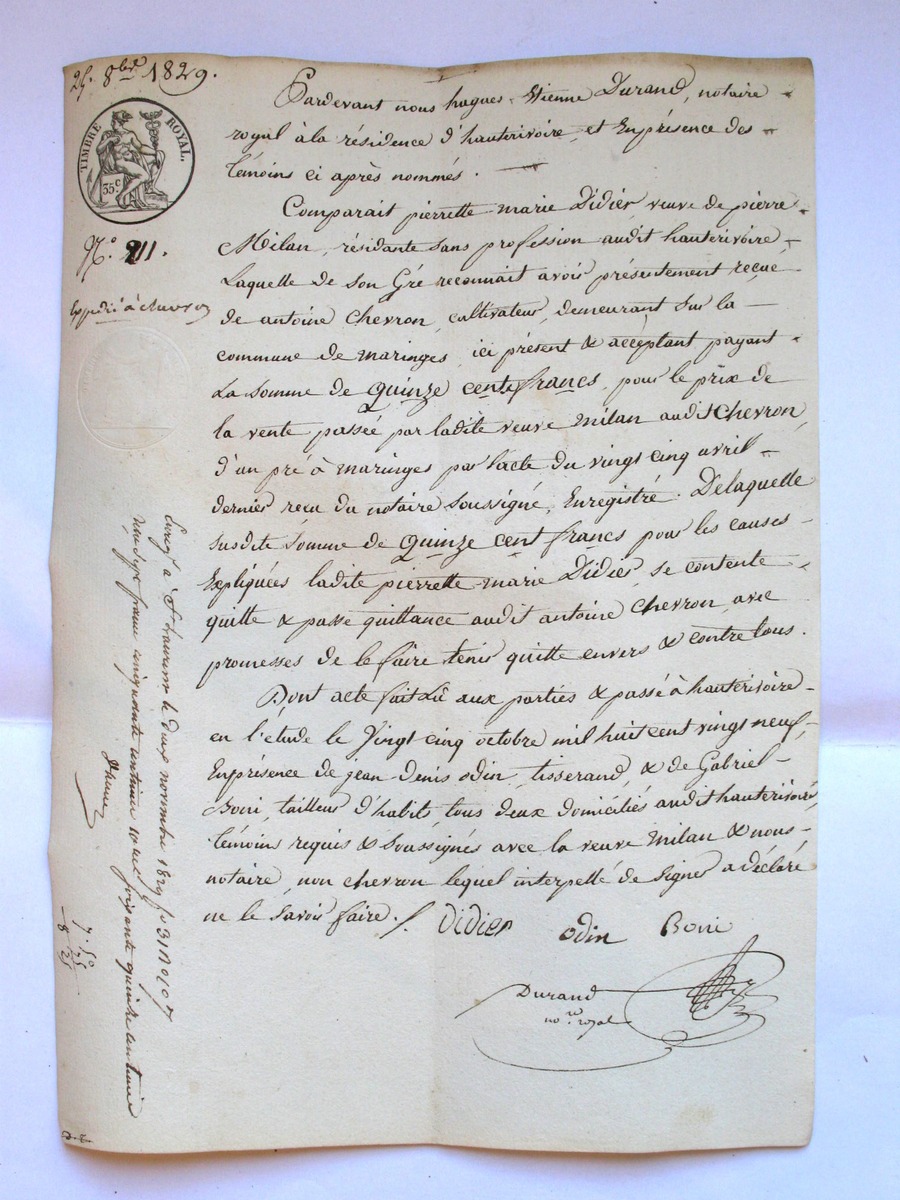 25. 8bre 1829.
TIMBRE ROYAL.
35 c.
N.o 211.
Expédié à chevron
Pardevant nous hugues-Etienne Durand, notaire
royal à la résidence d'hauterivoire, et Enprésence des
témoins ci après nommés.
Comparait pierrette-marie Didier, veuve de pierre
Milan, résidante sans profession audit hauterivoire
Laquelle de son Gré reconnait avoir présentement reçue
de antoine Chevron, cultivateur, demeurant sur la
commune de maringes, ici présent & accéptant payant
La somme de quinze cents francs, pour le prix de
la vente passée par ladite veuve milan audit Chevron,
d'un pré à maringes par l'acte du vingt cinq avril
dernier reçu du notaire soussigné, Enregistré. Delaquelle
susdite somme de quinze cent francs pour les causes
Expliquées ladite pierrette-marie Didier, se contente
quitte & passe quittance audit antoine Chevron, avec
promesses de le faire tenir quitte envers & contre tous.
Dont acte fait Lû aux parties & passé à hauterivoire
en l'étude le Vingt cinq octobre mil huit cent vingt neuf,
Enprésence de jean-denis odin, tisserand, & de Gabriel
Boni, tailleur d'habits, tous deux domiciliés audit hauterivoire,
témoins requis & soussignés avec la veuve milan & nous
notaire, non chevron lequel interpellé de signer a déclaré
ne le savoir faire. /.
Didier odin Boni
Durand
no.re royal
à St Laurent le deux novembre 1829 fo 31
sept francs cinquante centimes soixante quinze centimes
7. 50
75
8 25